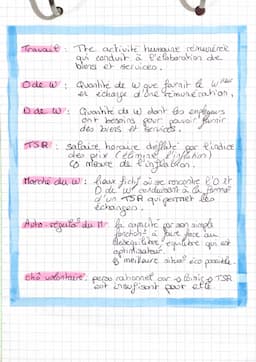 Travail : The activité humaine rémunérée
qui conduit à l'élaboration de
biens et services.
O de W : Quantité de W que fournit le W
en échange d'une rémunération.
D de W : Quantité de W dont les employeurs
ont besoins pour pouvoir fournir
des biens et services.
TSR : salaire horaire déflaté par l'indice
des prix (élimine l'inflation)
mesure de l'inflation.
Marché du W : lieux fictif où se rencontre l'O et
D de W conduisant à la forma°
d'un TSR qui permet les
échanges.
Auto-régula° du M : la capacité par son simple
fonction^t à faire face au
déséquilibre, équilibre qui est
optimisateur.
meilleure situa° éco possible.
chô volontaire : perso rationnel car → TSR
soit insuffisant pour elle